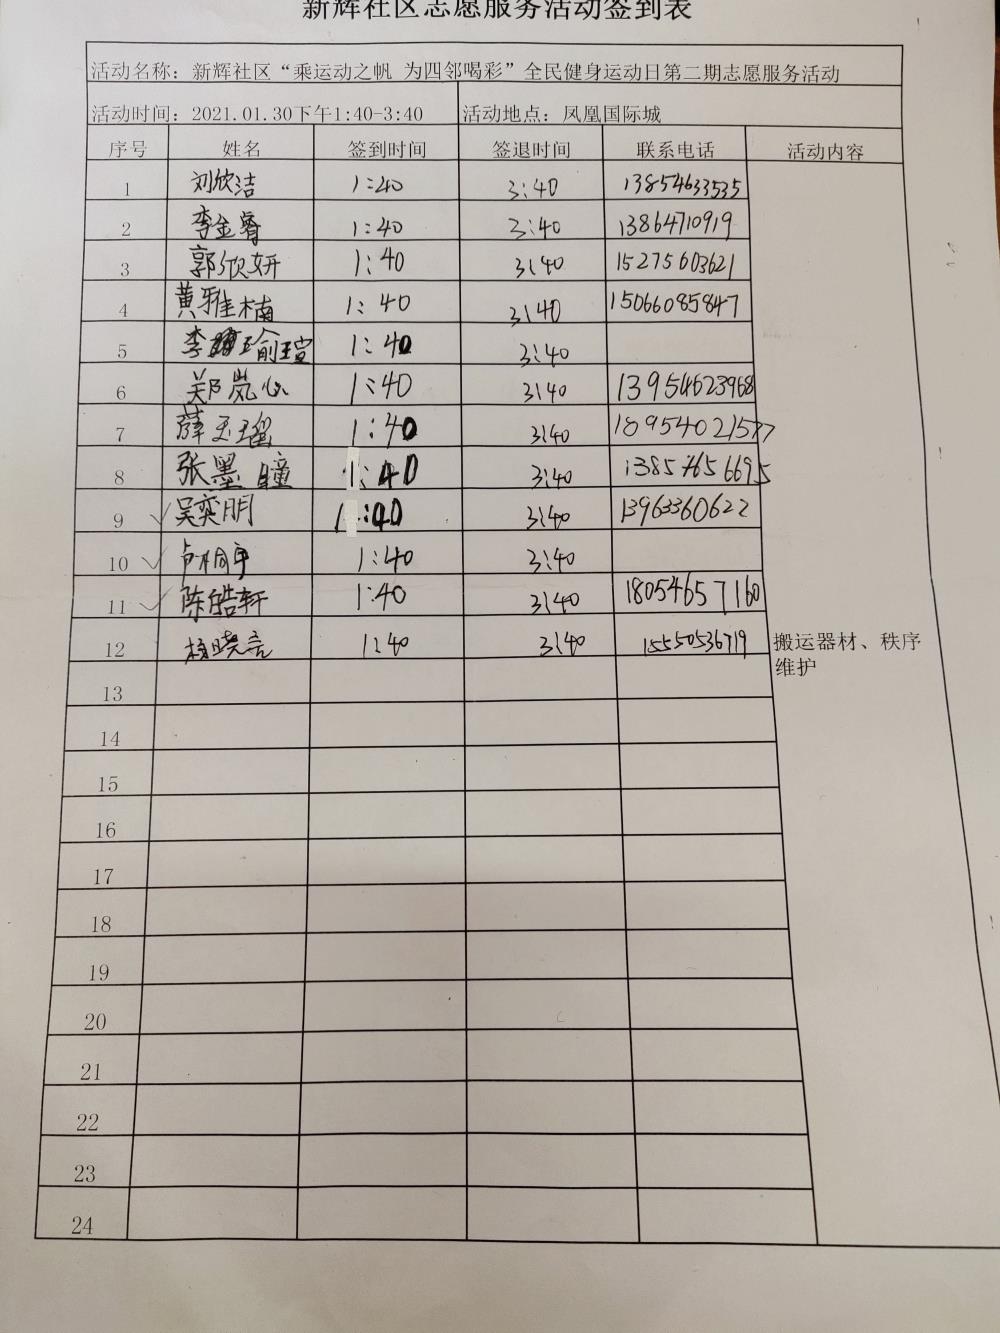 新辉社区志愿服务活动签到表
活动名称：新辉社区“乘运动之帆 为四邻喝彩”全民健身运动日第二期志愿服务活动
活动时间：2021.01.30下午1:40-3:40 活动地点：凤凰国际城
序号 姓名 签到时间 签退时间 联系电话 活动内容
1 刘欣洁 1:40 3:40 13854633535
2 李金睿 1:40 3:40 13864710919
3 郭欣妍 1:40 3:40 15275603621
4 黄雅楠 1:40 3:40 15066085847
5 李瑜瑄 1:40 3:40
6 郑岚心 1:40 3:40 13954623968
7 薛玉瑶 1:40 3:40 18954021577
8 张墨瞳 1:40 3:40 13857656695
9 吴奕明 1:40 3:40 13963360622
10 卢桐宇 1:40 3:40
11 陈皓轩 1:40 3:40 18054657160
12 杨晓言 1:40 3:40 15550536719
搬运器材、秩序
维护
13
14
15
16
17
18
19
20
21
22
23
24